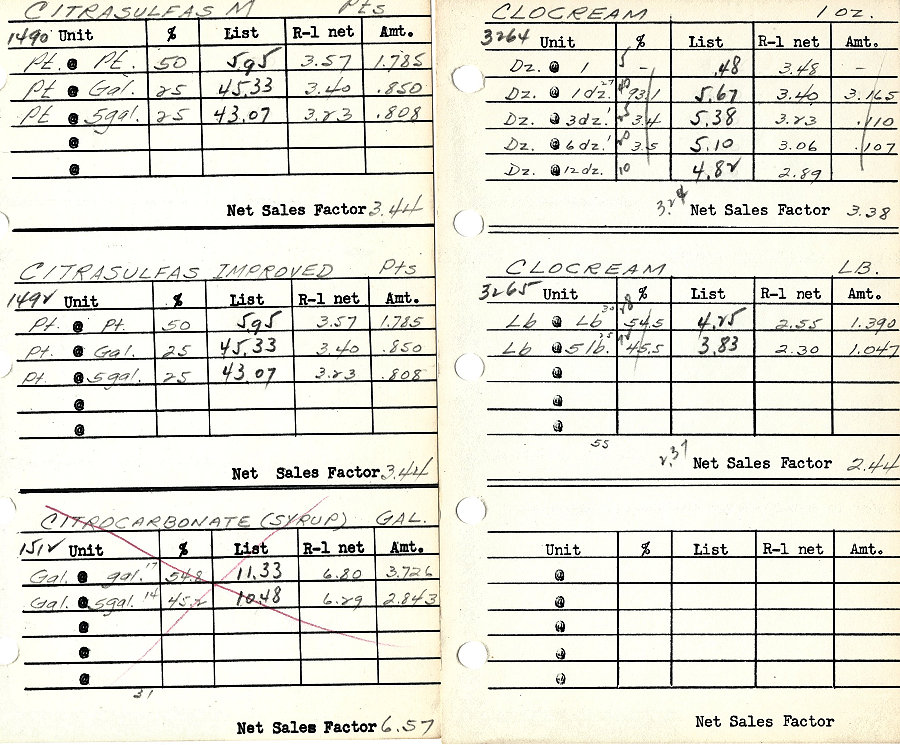 CITRASULFAS M Pts
1490 Unit % List R-1 net Amt.
Pt. @ Pt. 50 5.95 3.57 1.785
Pt @ Gal. 25 45.33 3.40 .850
Pt @ 5gal. 25 43.07 3.23 .808
@
@
Net Sales Factor 3.44
CITRASULFAS IMPROVED Pts
1492 Unit % List R-1 net Amt.
Pt. @ Pt. 50 5.95 3.57 1.785
Pt. @ Gal. 25 45.33 3.40 .850
Pt. @ 5gal. 25 43.07 3.23 .808
@
@
Net Sales Factor 3.44
CITROCARBONATE (SYRUP) GAL.
1512 Unit % List R-1 net Amt.
Gal. @ gal. 17 54.8 11.33 6.80 3.726
Gal. @ 5gal. 14 45.2 10.48 6.29 2.843
@
@
@
31
Net Sales Factor 6.57
CLOCREAM 1 oz.
3264 Unit % List R-1 net Amt.
Dz. @ 1 5 - .48 3.48 -
Dz. @ 1dz. 27 40 93.1 5.67 3.40 3.165
Dz. @ 3dz. 1 25 3.4 5.38 3.23 .110
Dz. @ 6dz. 1 20 3.5 5.10 3.06 .107
Dz. @ 12dz. 10 4.82 2.89
Net Sales Factor 3.38
CLOCREAM LB.
3265 Unit % List R-1 net Amt.
Lb @ Lb 30 28 54.5 4.25 2.55 1.390
Lb @ 5lb. 25 45.5 3.83 2.30 1.047
@
@
@
55
2.37 Net Sales Factor 2.44
Unit % List R-1 net Amt.
@
@
@
@
@
Net Sales Factor